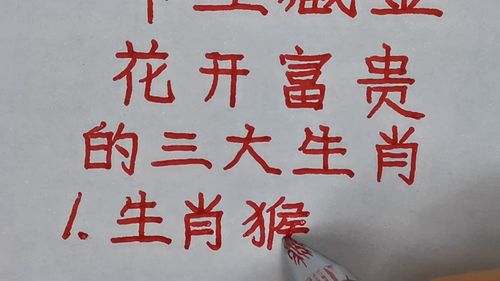 花开富贵
的三大生肖
1.生肖猴